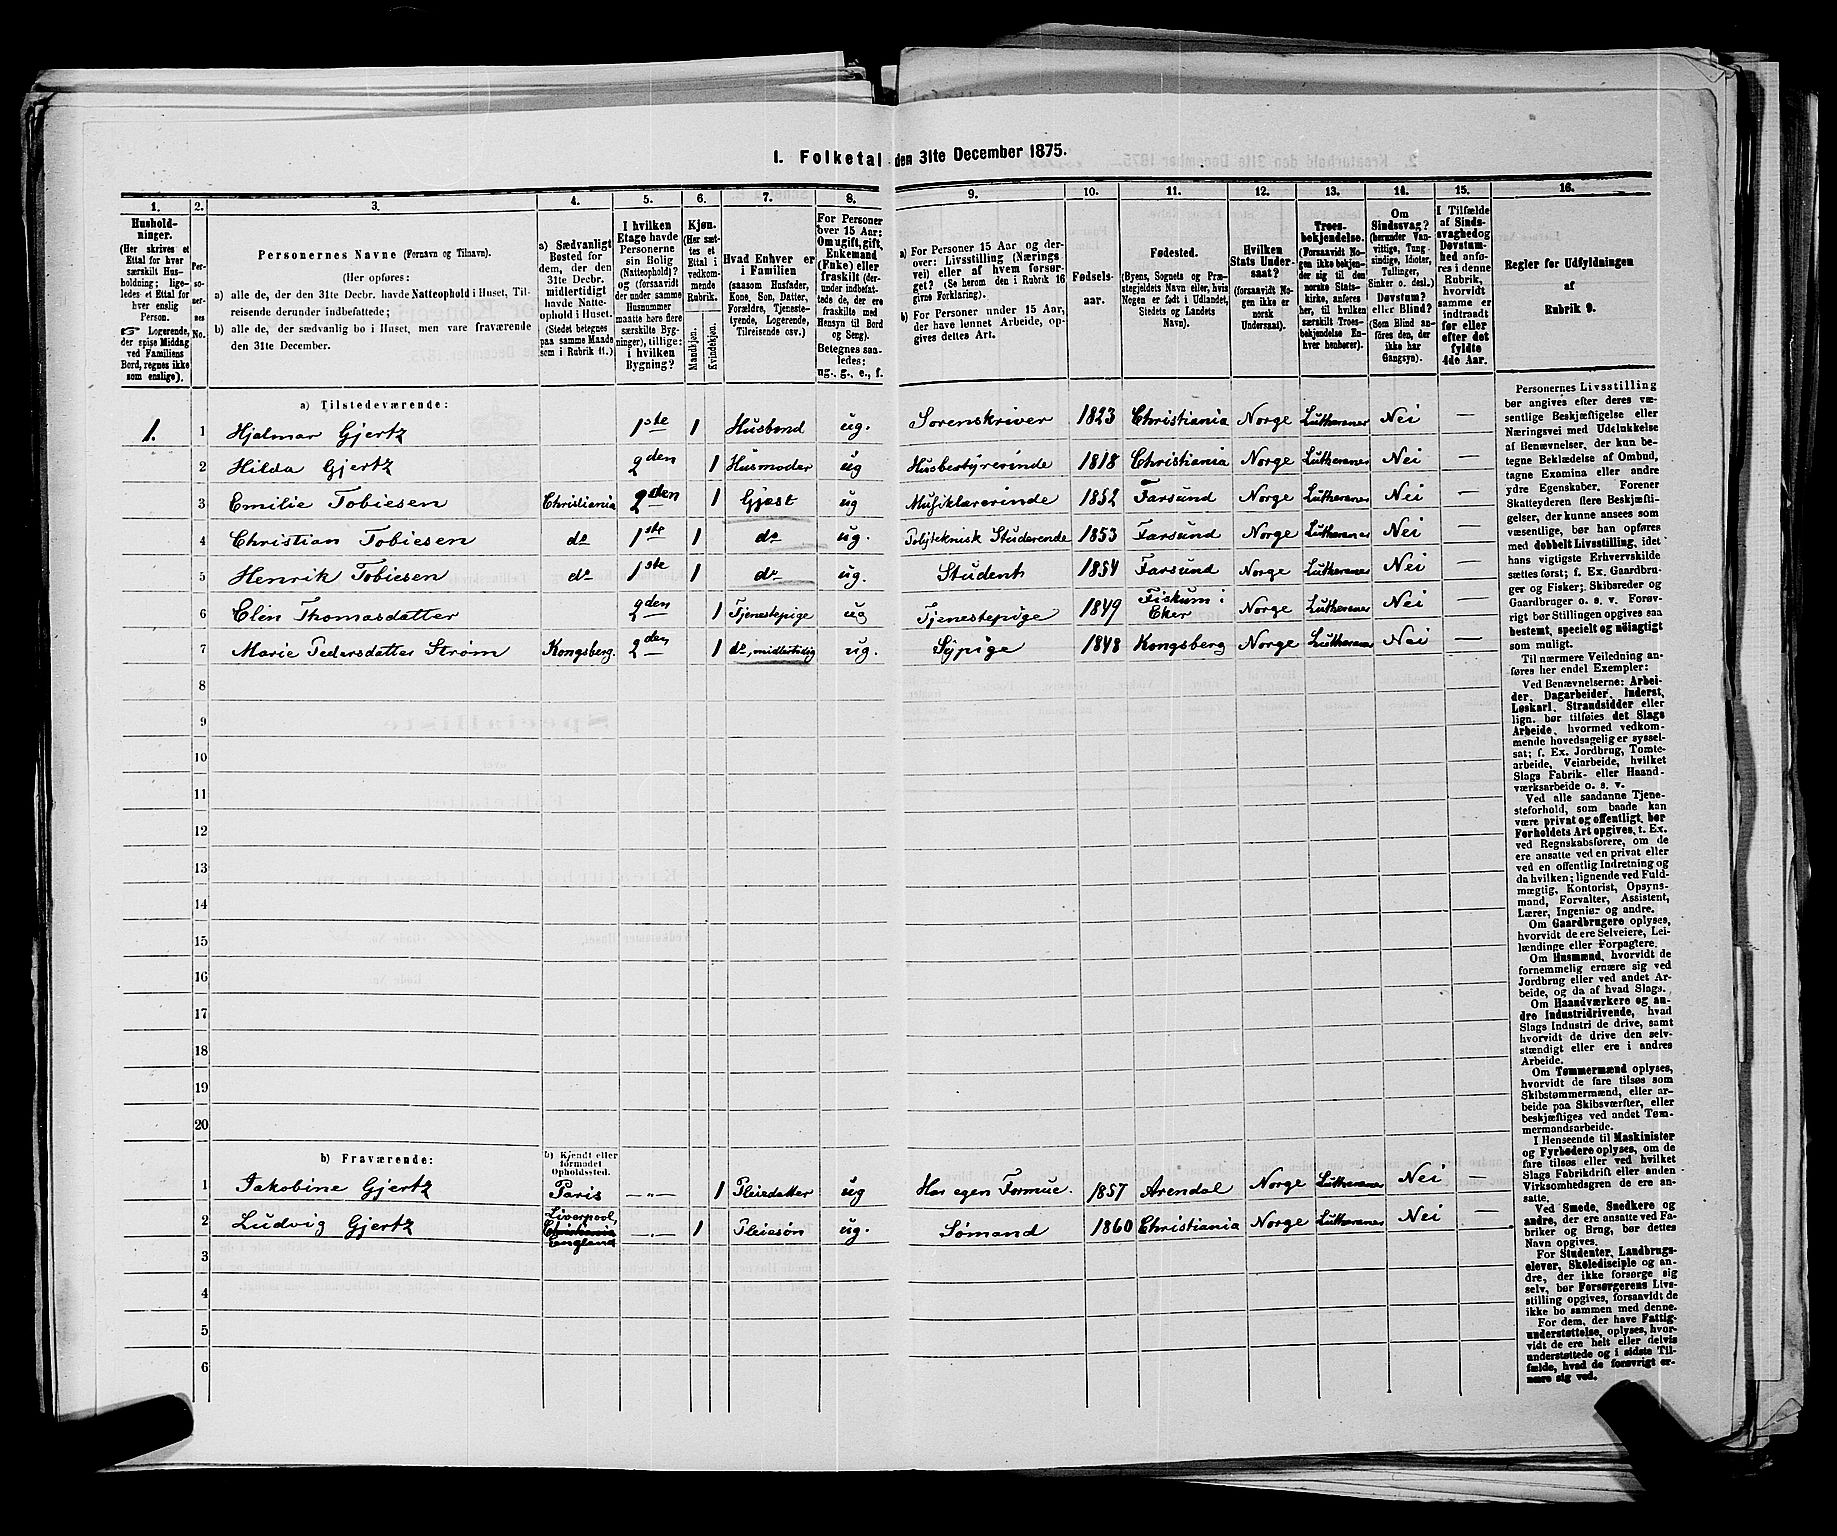 1. Folketal den 31te December 1875.
1. 2. 3. 4. 5. 6. 7. 8. 9. 10. 11. 12. 13. 14. 15. 16.
Hushold-
ninger.
(Her skrives et
Ettal for hver
særskilt Hus-
holdning; lige-
ledes et Ettal for
hver enslig
Person.
☞ Logerende,
der spise Middag
ved Familiens
Bord, regnes ikke
som enslige).
Per-
soner-
nes
No.
Personernes Navne (Fornavn og Tilnavn).
(Her opføres:
a) alle de, der den 31te Decbr. havde Natteophold i Huset, Til-
reisende derunder indbefattede;
b) alle de, der sædvanlig bo i Huset, men vare fraværende
den 31te December.
a) Sædvanligt
Bosted for
dem, der den
31te Decbr.
midlertidigt
havde Natte-
ophold i Huset.
(Stedet betegnes
paa samme Maade
som i Rubrik 11.)
I hvilken
Etage havde
Personerne
sin Bolig
(Natteophold)?
og (forsaavidt
der under samme
Husnummer
maatte høre flere
særskilte Byg-
ninger), tillige:
i hvilken
Bygning?
Kjøn.
(Her sæt-
tes et
Ettal i
vedkom-
mende
Rubrik.
Mandkjøn.
Kvindekjøn.
Hvad Enhver er
i Familien
(saasom Husfader,
Kone, Søn, Datter,
Forældre, Tjeneste-
tyende, Logerende,
Tilreisende osv.)
For Personer
over 15 Aar:
Om ugift, gift,
Enkemand
(Enke) eller
fraskilt (der-
under indbefat-
tede de, der ere
fraskilte med
Hensyn til Bord
og Seng).
Betegnes saa-
ledes:
ug., g., e., f.
a) For Personer 15 Aar og der-
over: Livsstilling (Nærings-
vei) eller af hvem forsør-
get? (Se herom den i Rubrik 16
givne Forklaring).
b) For Personer under 15 Aar,
der have lønnet Arbeide, op-
gives dettes Art.
Fødsels-
aar.
Fødested.
(Byens, Sognets og Præ-
stegjeldets Navn eller, hvis
Nogen er født i Udlandet,
Stedets og Landets
Navn).
Hvilken
Stats Under-
saat?
(forsaavidt No-
gen ikke er
norsk
Undersaat).
Troes-
bekjendelse.
(Forsaavidt No-
gen ikke bekjen-
der sig til den
norske Stats-
kirke, anføres
her, til hvilken
særskilt Troes-
bekjendelse En-
hver henhører).
Om
Sindssvag?
(herunder Van-
vittige, Tung-
sindige, Idioter,
Tullinger,
Sinker o. desl.)
Døvstum?
eller Blind?
(Som Blind an-
føres den, der
ikke har
Gangsyn).
I Tilfælde
af Sinds-
svaghed og
Døvstum-
hed anfø-
res i denne
Rubrik,
hvorvidt
samme er
indtraadt
før eller
efter det
fyldte
4de Aar.
Regler for Udfyldningen
af
Rubrik 9.
a) Tilstedeværende:
1. 1 Hjalmar Gjertz 1ste 1 Husbond ug. Sorenskriver 1823 Christiania Norge Lutheraner Nei —
2 Hilda Gjertz 2den 1 Husmoder ug Husbestyrerinde 1818 Christiania Norge Lutheraner Nei —
3 Emilie Tobiesen Christiania 2den 1 Gjæst ug Musiklærerinde 1852 Farsund Norge Lutheraner Nei —
4 Christian Tobiesen do 1ste 1 do ug. Polyteknisk Studerende 1853 Farsund Norge Lutheraner Nei —
5 Henrik Tobiesen do 1ste 1 do ug. Student 1854 Farsund Norge Lutheraner Nei —
6 Elen Thomasdatter 2den 1 Tjenestepige ug Tjenestepige 1849 Fiskum i Eker Norge Lutheraner Nei —
7 Marie Pedersdatter Strøm Kongsberg. 2den 1 do, midlertidig ug. Sypige 1848 Kongsberg Norge Lutheraner Nei —
8
9
10
11
12
13
14
15
16
17
18
19
20
b) Fraværende:
b) Kjendt eller
formodet
Opholdssted.
1 Jakobine Gjertz Paris —„— 1 Pleiedatter ug Har egen Formue. 1857 Arendal Norge Lutheraner Nei —
2 Ludvig Gjertz Liverpool, Christiania England —„— 1 Pleiesøn ug. Sømand 1860 Christiania Norge Lutheraner Nei —
3
4
5
6
Personernes Livsstilling
bør angives efter deres væ-
sentlige Beskjæftigelse eller
Næringsvei med Udelukkelse
af Benævnelser, der kun be-
tegne Beklædelse af Ombud,
tagne Examina eller andre
ydre Egenskaber. Forener
Skatteyderen flere Beskjæfti-
gelser, der kunne ansees som
væsentlige, bør han opføres
med dobbelt Livsstilling, idet
hans vigtigste Erhvervskilde
sættes først; f. Ex. Gaardbru-
ger og Fisker; Skibsreder og
Gaardbruger o. s. v. Forøv-
rigt bør Stillingen opgives saa
bestemt, specielt og nøiagtigt
som muligt.
Til nærmere Veiledning an-
føres her endel Exempler:
Ved Benævnelserne: Arbei-
der, Dagarbeider, Inderst,
Løskarl, Strandsidder eller
lign. bør tilføies det Slags
Arbeide, hvormed vedkom-
mende hovedsagelig er syssel-
sat; f. Ex. Jordbrug, Tomte-
arbeide, Veiarbeide, hvilket
Slags Fabrik- eller Haand-
værksarbeide o. s. v.
Ved alle saadanne Tjene-
steforhold, som baade kan
være privat og offentligt, bør
Forholdets Art opgives, t. Ex.
ved Regnskabsførere, om de
ere ansatte ved en privat eller
ved en offentlig Indretning og
da hvilken; lignende ved Fuld-
mægtig, Kontorist, Opsyns-
mand, Forvalter, Assistent,
Lærer, Ingeniør og andre.
Om Gaardbrugere oplyses,
hvorvidt de ere Selveiere, Lei-
lændinge eller Forpagtere.
Om Husmænd, hvorvidt de
fornemmelig ernære sig ved
Jordbrug eller ved andet Ar-
beide, og da af hvad Slags.
Om Haandværkere og an-
dre Industridrivende, hvad
Slags Industri de drive, samt
hvorvidt de drive den selv-
stændigt eller ere i andres
Arbeide.
Om Tømmermænd oplyses,
hvorvidt de fare tilsøs som
Skibstømmermænd, eller ar-
beide paa Skibsværfter, eller
beskjæftiges ved andet Tøm-
mermandsarbeide.
I Henseende til Maskinister
og Fyrbødere oplyses, om de
fare tilsøs eller ved hvilket
Slags Fabrikdrift eller anden
Virksomhedsgren de ere an-
satte.
Ved Smede, Snedkere og
andre, der ere ansatte ved Fa-
briker og Brug, bør dettes
Navn opgives.
For Studenter, Landbrugs-
elever, Skoledisciple og an-
dre, der ikke forsørge sig
selv, bør Forsørgerens Livs-
stilling opgives, forsaavidt de
ikke bo sammen med denne.
For dem, der have Fattig-
understøttelse, oplyses, hvor-
vidt de ere helt eller delvis
understøttede og i sidste Til-
fælde, hvad de forøvrigt er-
nære sig ved.